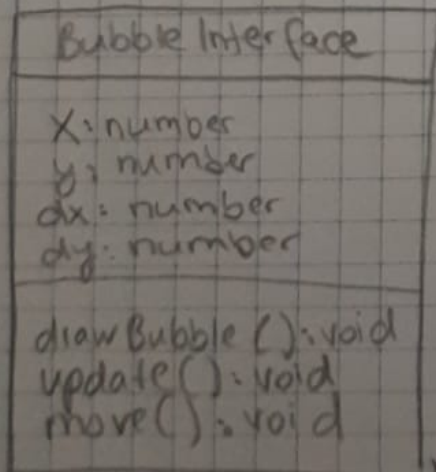 Bubble Interface
x: number
y: number
dx: number
dy: number
drawBubble(): void
update(): void
move(): void